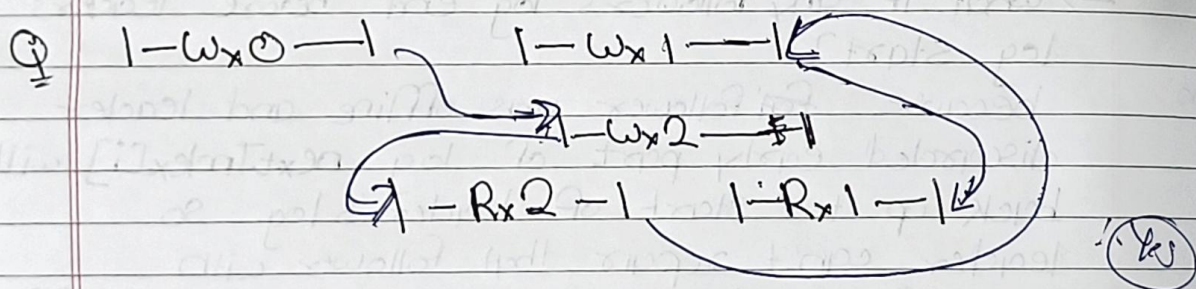 Q |-Wx0-| |-Wx1-|
|-Wx2-|
|-Rx2-| |-Rx1-|
∴ Yes